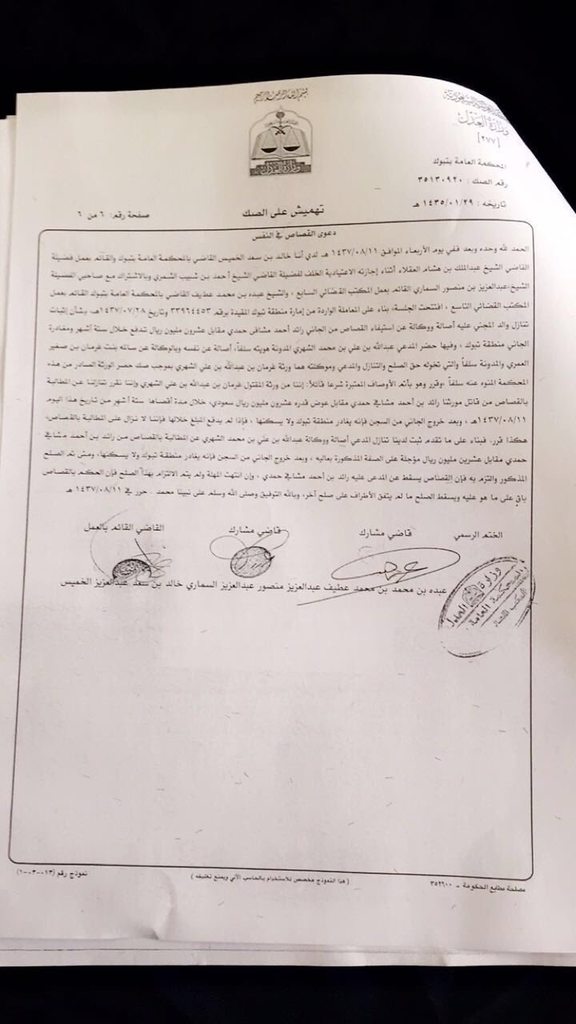 بسم الله الرحمن الرحيم
المملكة العربية السعودية
وزارة العدل
[٢٧٧]
وزارة العدل
المحكمة العامة بتبوك
رقم الصك : ٣٥١٣٠٩٢٠
تاريخه : ١٤٣٥/٠١/٢٩ هـ
تهميش على الصك
صفحة رقم: ٦ من ٦
دعوى القصاص في النفس
الحمد لله وحده وبعد ففي يوم الأربعاء الموافق ١٤٣٧/٠٨/١١ هـ لدي أنا خالد بن سعد الخميس القاضي بالمحكمة العامة بتبوك والقائم بعمل فضيلة
القاضي الشيخ عبدالملك بن هشام العقلاء أثناء إجازته الاعتيادية الخلف لفضيلة القاضي الشيخ أحمد بن شبيب الشمري وبالاشتراك مع صاحبي الفضيلة
الشيخ عبدالعزيز بن منصور السماري القائم بعمل المكتب القضائي السابع ، والشيخ عبده بن محمد عطيف القاضي بالمحكمة العامة بتبوك القائم بعمل
المكتب القضائي التاسع ، افتتحت الجلسة، بناء على المعاملة الواردة من إمارة منطقة تبوك المقيدة برقم ٣٣٩٢٤٤٥٣ وتاريخ ١٤٣٧/٠٧/٢٨هـ، بشأن إثبات
تنازل والد المجني عليه أصالة ووكالة عن استيفاء القصاص من الجاني رائد أحمد مشافي حمدي مقابل عشرون مليون ريال تندفع خلال ستة أشهر ومغادرة
الجاني منطقة تبوك ، وفيها حضر المدعي عبدالله بن علي بن محمد الشهري المدونة هويته سلفاً، أصالة عن نفسه وبالوكالة عن سالمه بنت غرمان بن صغير
العمري والمدونة سلفاً والتي تخوله حق الصلح والتنازل والمدعي وموكلته هما ورثة غرمان بن عبدالله بن علي الشهري بموجب صك حصر الورثة الصادر من هذه
المحكمة المنوه عنه سلفاً ،وقرر وهو بأتم الأوصاف المعتبرة شرعاً قائلاً: إننا من ورثة المقتول غرمان بن عبدالله بن علي الشهري وإننا نقرر تنازلنا عن المطالبة
بالقصاص من قاتل مورثنا رائد بن أحمد مشافي حمدي مقابل عوض قدره عشرون مليون ريال سعودي، خلال مدة أقصاها ستة أشهر من تاريخ هذا اليوم
١٤٣٧/٠٨/١١هـ ، وبعد خروج الجاني من السجن فإنه يغادر منطقة تبوك ولا يسكنها ، فإذا لم يدفع المبلغ خلالها فإننا لا نزال على المطالبة بالقصاص،
هكذا قرر، فبناء على ما تقدم ثبت لدينا تنازل المدعي أصالة ووكالة عبدالله بن علي بن محمد الشهري عن المطالبة بالقصاص من رائد بن أحمد مشافي
حمدي مقابل عشرين مليون ريال مؤجلة على الصفة المذكورة بعاليه ، وبعد خروج الجاني من السجن فإنه يغادر منطقة تبوك ولا يسكنها، ومتى تم الصلح
المذكور والتزم به فإن القصاص يسقط عن المدعى عليه رائد بن أحمد مشافي حمدي ، وإن انتهت المهلة ولم يتم الالتزام بهذا الصلح فإن الحكم بالقصاص
باق على ما هو عليه ويسقط الصلح ما لم يتفق الأطراف على صلح آخر، وبالله التوفيق وصلى الله وسلم على نبينا محمد . حرر في ١٤٣٧/٠٨/١١ هـ
الختم الرسمي
قاضي مشارك
قاضي مشارك
القاضي القائم بالعمل
عبده بن محمد بن محمد عطيف عبدالعزيز منصور عبدالعزيز السماري خالد بن سعد عبدالعزيز الخميس
وزارة العدل
المحكمة العامة
مصلحة مطابع الحكومة - ٣٥٢٦١٠
( هذا النموذج مخصص للاستخدام بالحاسب الآلي ويمنع تغليفه )
نموذج رقم (١٣-٠٣-١)